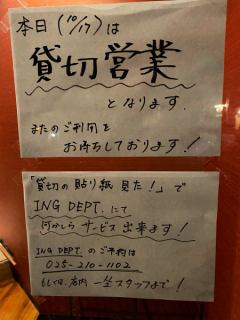 本日(10/17)は
貸切営業
となります.
またのご利用を
お待ちしております!
「貸切の貼り紙見た!」で
ING DEPT. にて
何かしらサービス出来ます!
ING DEPT. のご予約は
025-210-1102
もしくは、店内スタッフまで!